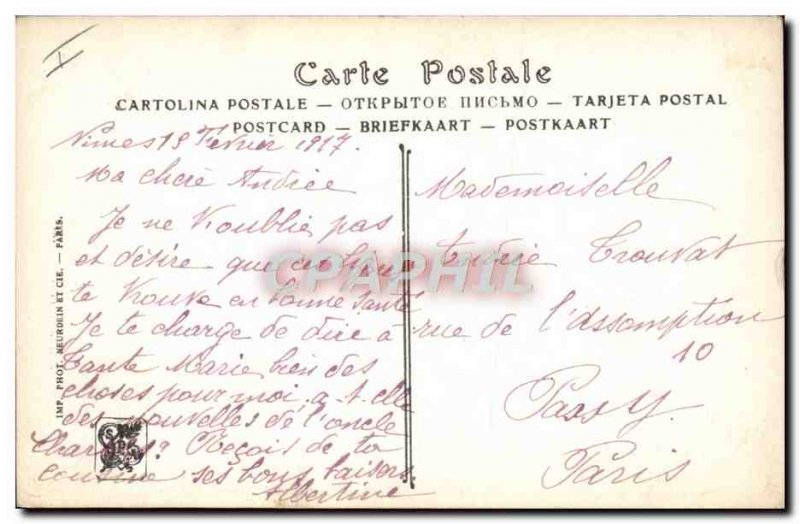 Carte Postale
CARTOLINA POSTALE — ОТКРЫТОЕ ПИСЬМО — TARJETA POSTAL
POSTCARD — BRIEFKAART — POSTKAART
Nimes 19 Fevrier 1917.
Ma chere Andrée
Je ne t'oublie pas
et désire que
te trouve en bonne santé
Je te charge de dire à
Tante Marie bien des
choses pour moi a t elle
des nouvelles de l'oncle
Charles? Reçois de ta
cousine ses bons baisers
Albertine
Mademoiselle
Andrée Trouvat
rue de l'assomption
10
Passy
Paris
IMP. PHOT. NEURDEIN ET CIE. — PARIS.
CPAPHIL